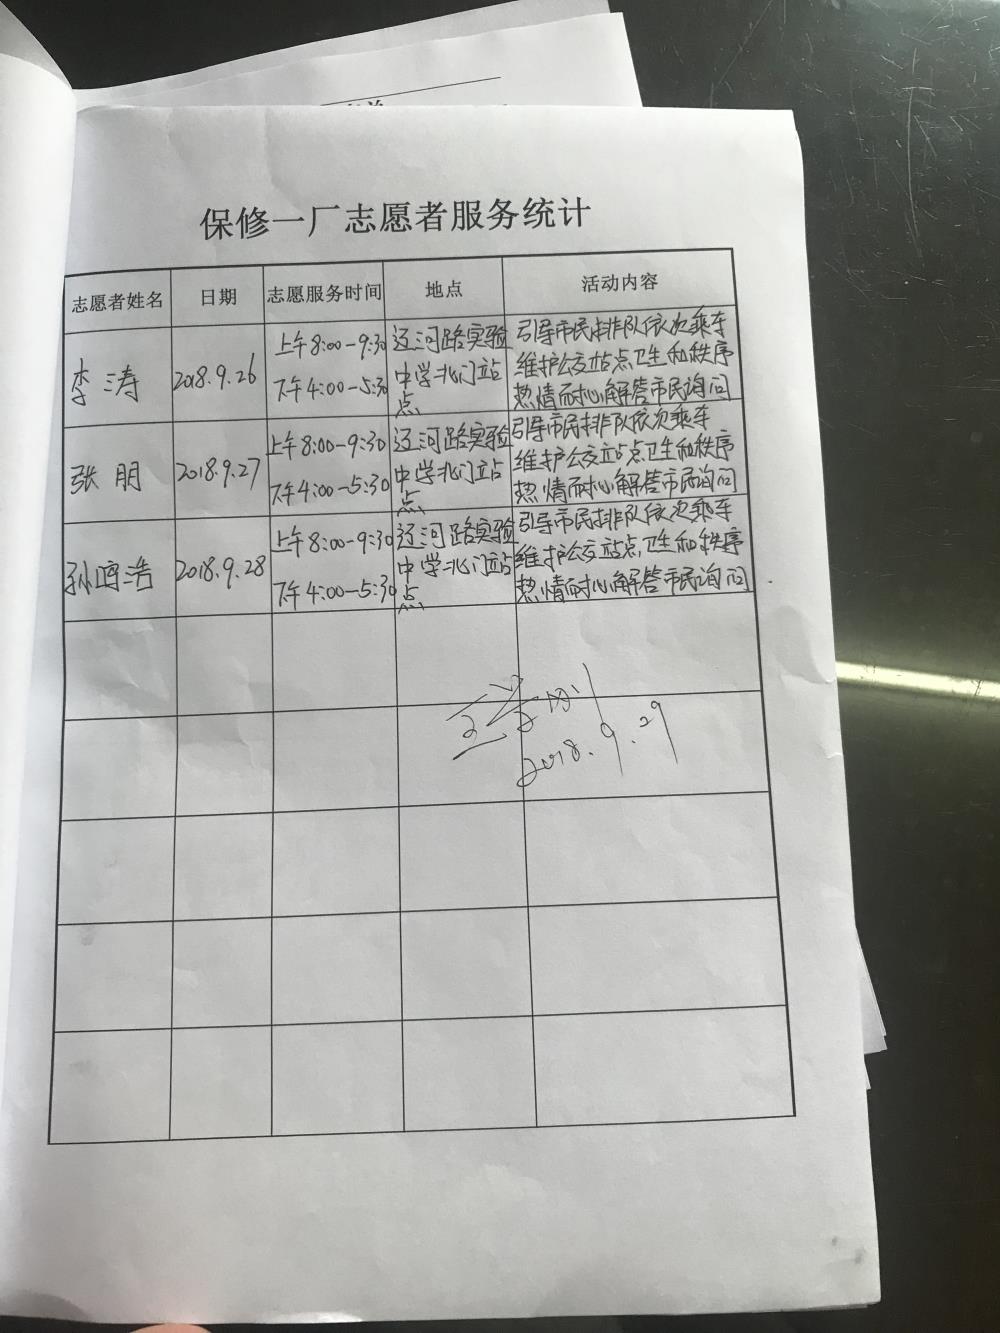 保修一厂志愿者服务统计
志愿者姓名 日期 志愿服务时间 地点 活动内容
李涛
2018.9.26
上午8:00-9:30
下午4:00-5:30
辽河路实验
中学北门站
点
引导市民排队依次乘车
维护公交站点卫生和秩序
热情耐心解答市民询问
张朋
2018.9.27
上午8:00-9:30
下午4:00-5:30
辽河路实验
中学北门站
点
引导市民排队依次乘车
维护公交站点卫生和秩序
热情耐心解答市民询问
孙鸣浩
2018.9.28
上午8:00-9:30
下午4:00-5:30
辽河路实验
中学北门站
点
引导市民排队依次乘车
维护公交站点卫生和秩序
热情耐心解答市民询问
2018.9.29